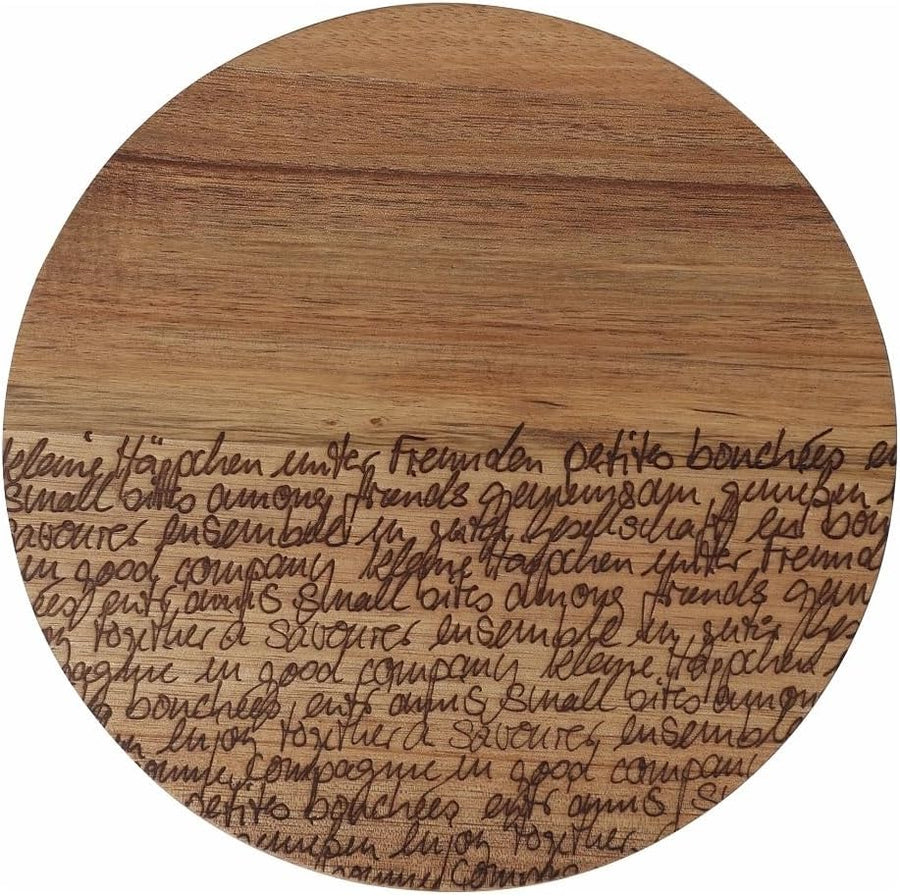 kleine Häppchen unter Freunden petites bouchées en
small bites among friends gemeinsam genießen
savourer ensemble in guter Gesellschaft en bon
in good company kleine Häppchen unter Freund
ées entr amis small bites among friends gem
together à savourer ensemble in guter Ges
pagnie in good company kleine Häppchen
bouchées entr amis small bites among
enjoy together à savourer ensemble
bonne compagnie in good company
petites bouchées entr amis s
genießen enjoy together
bonne compag